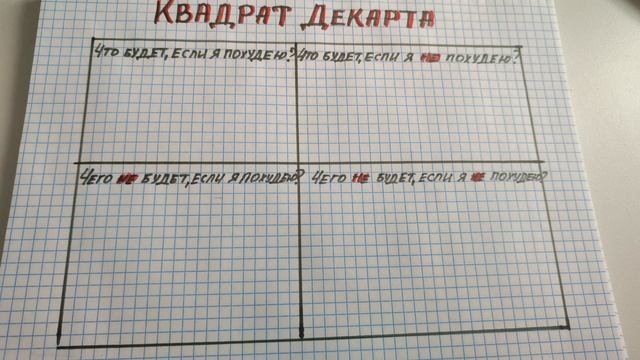 КВАДРАТ ДЕКАРТА
ЧТО БУДЕТ, ЕСЛИ Я ПОХУДЕЮ?
ЧТО БУДЕТ, ЕСЛИ Я НЕ ПОХУДЕЮ?
ЧЕГО НЕ БУДЕТ, ЕСЛИ Я ПОХУДЕЮ?
ЧЕГО НЕ БУДЕТ, ЕСЛИ Я НЕ ПОХУДЕЮ?